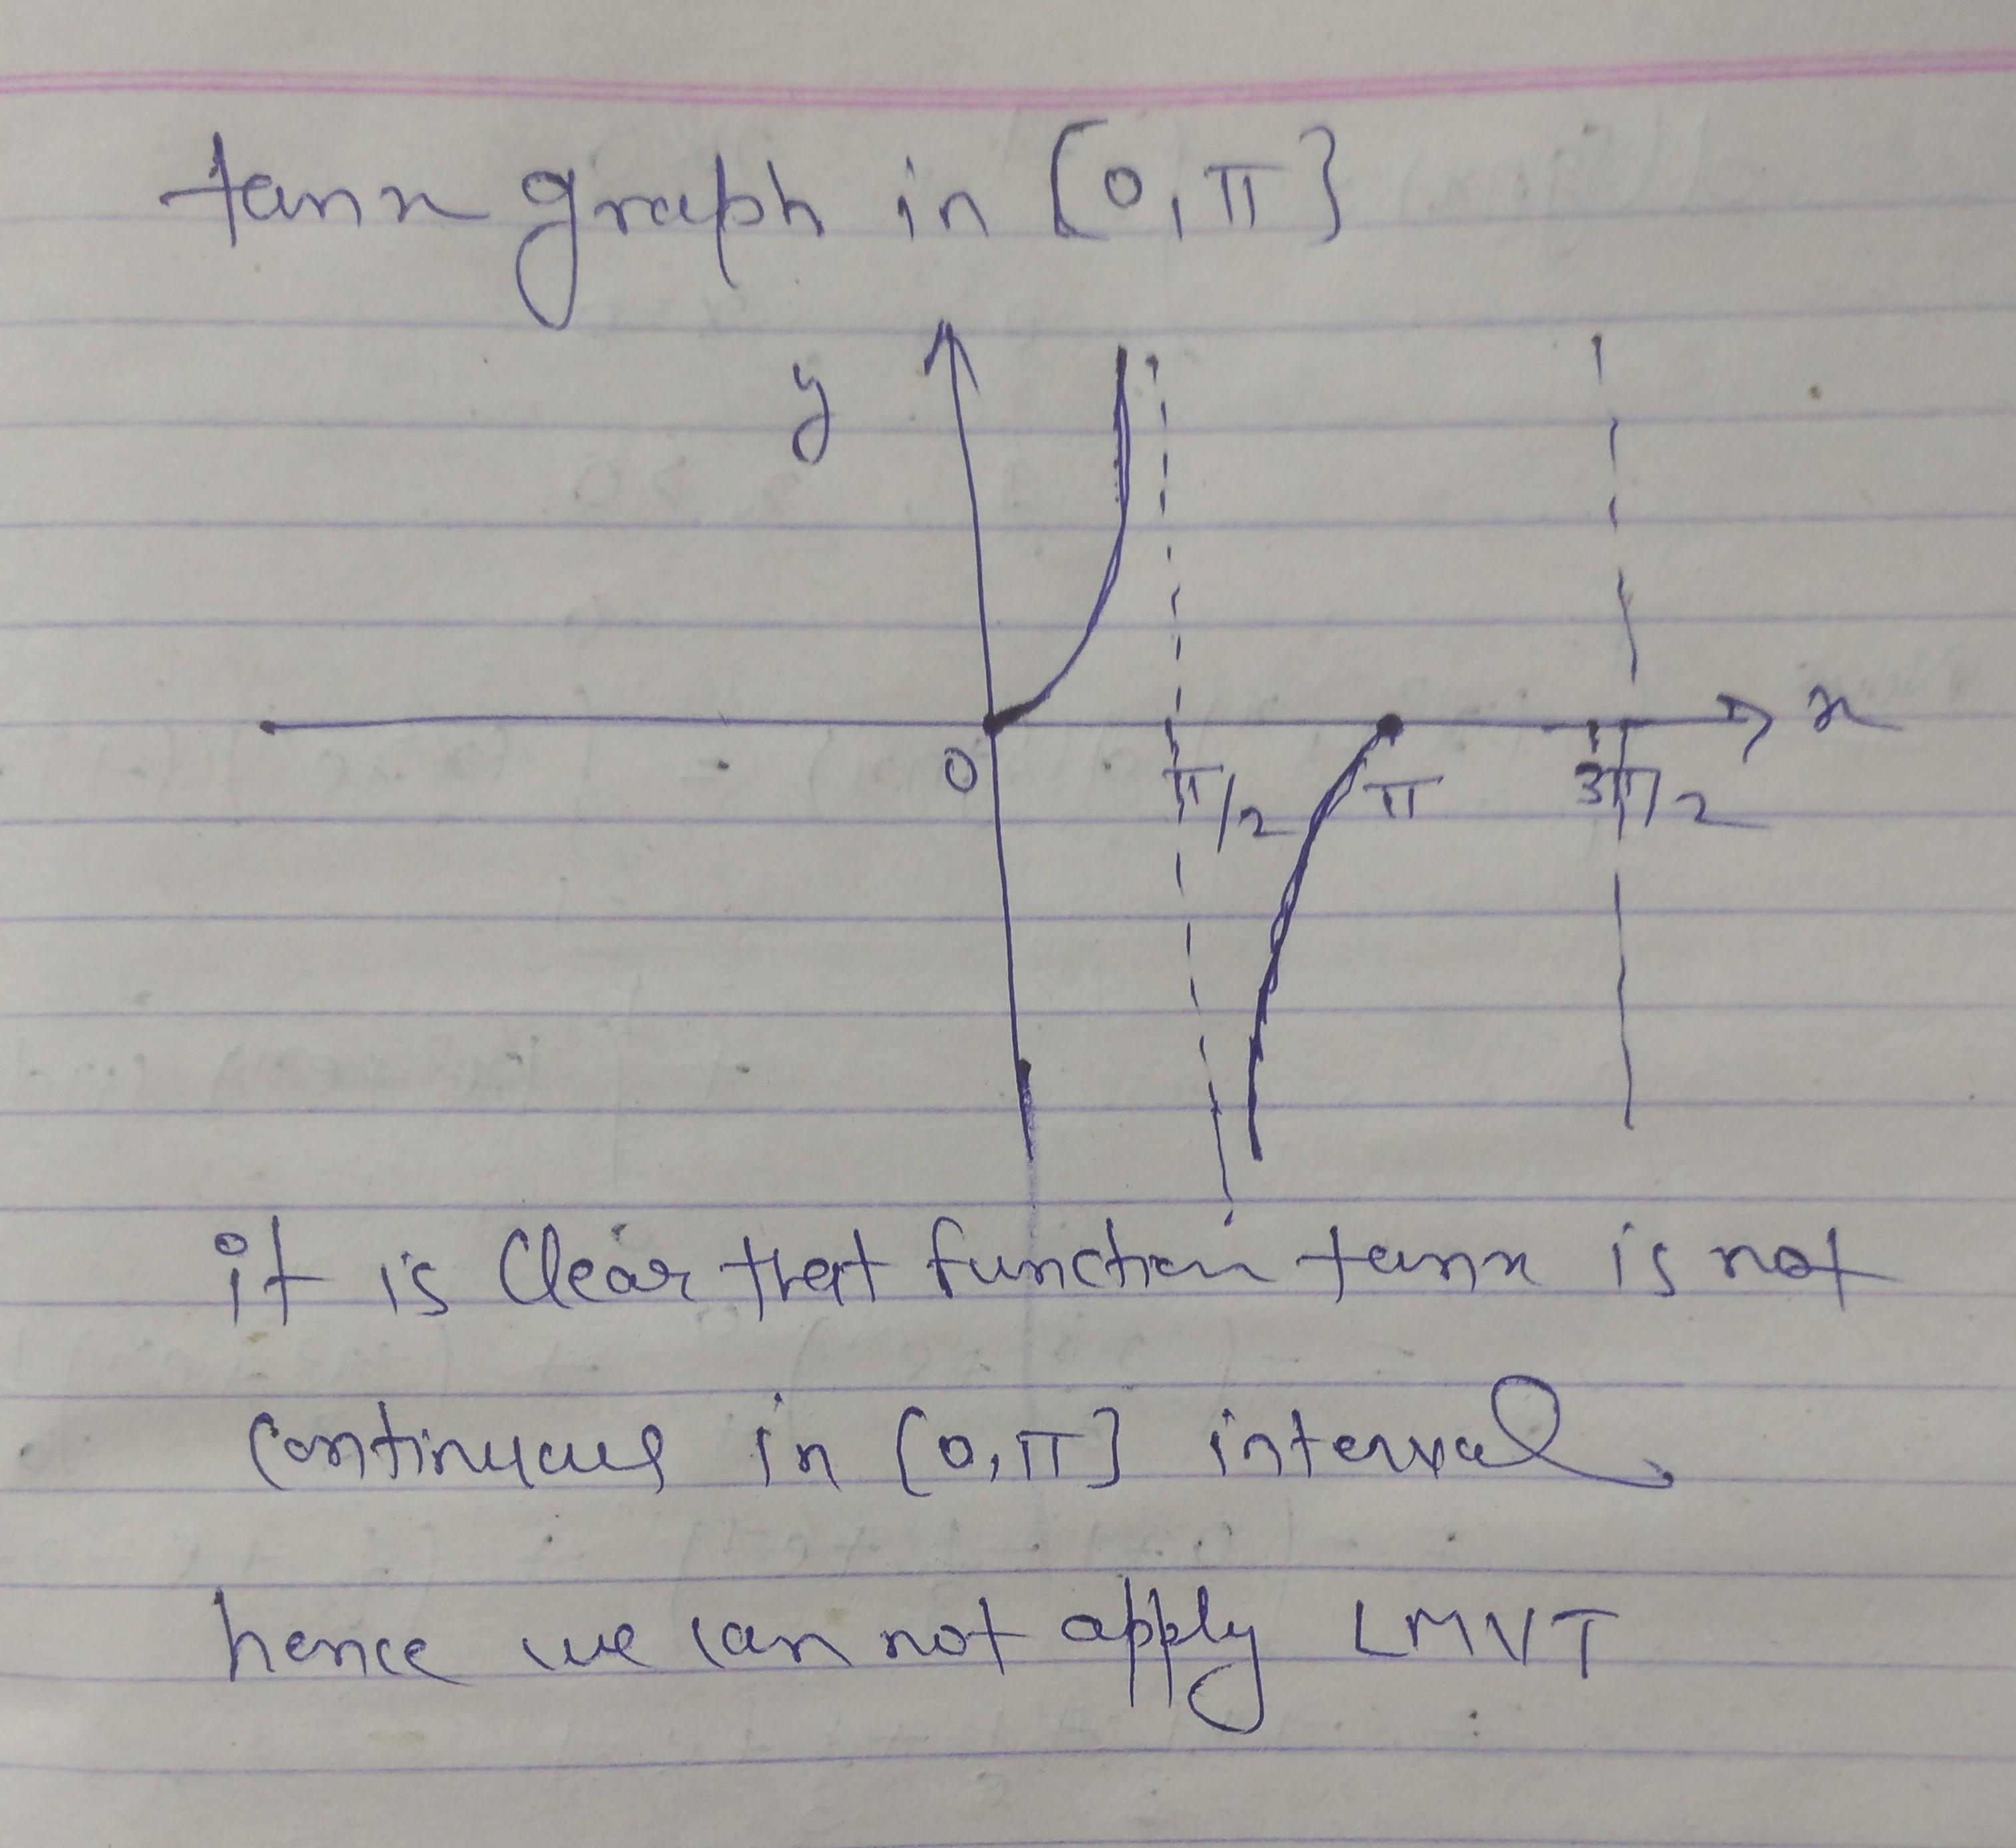 tanx graph in [0, π]
y
x
0
π/2
π
3π/2
it is Clear that function tanx is not
continuous in [0, π] interval,
hence we can not apply LMVT